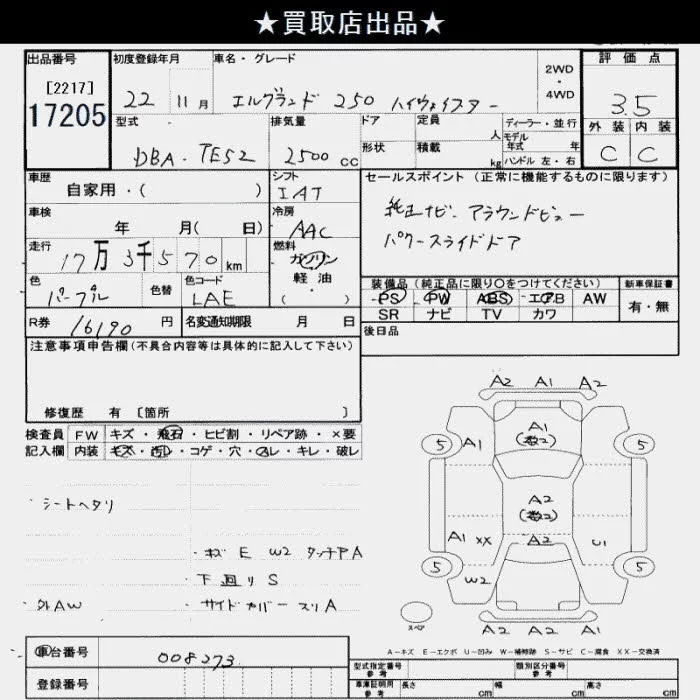 ★買取店出品★
出品番号 初度登録年月 車名・グレード 2WD・4WD 評価点
[2217]
17205
22 11月 エルグランド 250 ハイウェイスター 3.5
型式 排気量 ドア 定員 人 ディーラー・並行 外装 内装
形状 積載 kg モデル年式 年 ハンドル 左・右
DBA-TE52 2500cc C C
車歴 シフト セールスポイント (正常に機能するものに限ります)
自家用・( ) IAT
車検 冷房 純正ナビ アラウンドビュー
年 月( 日) AAC パワースライドドア
走行 燃料
17万3千570km ガソリン
軽油
( )
色 色替 色コード 装備品(純正品に限り○をつけてください) 新車保証書
パープル LAE PS PW ABS エアB AW 有・無
SR ナビ TV カワ
R券 16190円 名変通知期限 月 日 後日品
注意事項申告欄(不具合内容等は具体的に記入して下さい)
修復歴 有 [箇所 ]
検査員 FW キズ・飛石・ヒビ割・リペア跡・×要
記入欄 内装 キズ・汚レ・コゲ・穴・スレ・キレ・破レ
A2 A1 A2
A1
(数2)
5 A1 5
・シートヘタリ
A2
(数2)
A1 XX A2 U1
・キズ E W2 タッチP A
・下廻り S
5 W2 5
・外AW ・サイドカバースリA
スペア A2 A2 A1
A-キズ E-エクボ U-凹み W-補修跡 S-サビ C-腐食 XX-交換済
車台番号 008273
型式指定番号 参考 類別区分番号 参考
登録番号 車庫証明用 参考 長さ cm 幅 cm 高さ cm